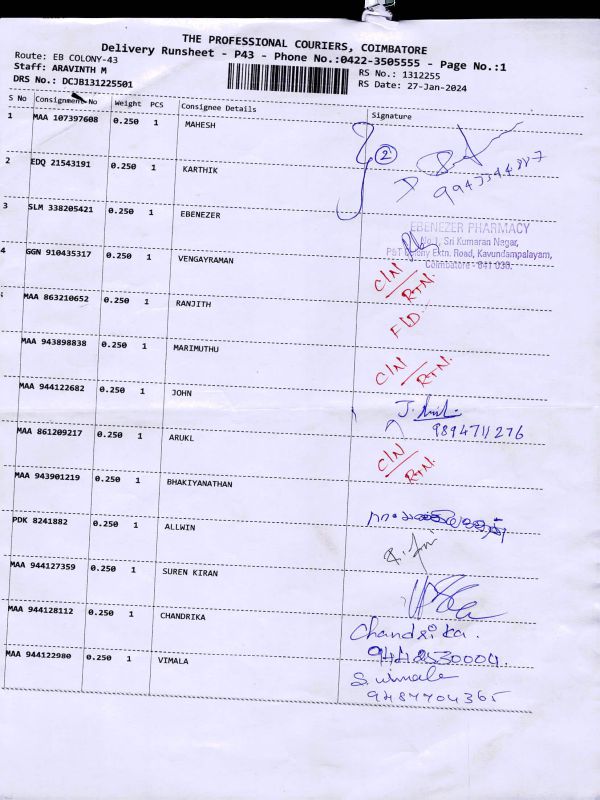 THE PROFESSIONAL COURIERS, COIMBATORE
Delivery Runsheet - P43 - Phone No.:0422-3505555 - Page No.:1
Route: EB COLONY-43
Staff: ARAVINTH M
RS No.: 1312255
DRS No.: DCJB131225501
RS Date: 27-Jan-2024
S No Consignment No Weight PCS Consignee Details Signature
1 MAA 107397608 0.250 1 MAHESH
2
2 EDQ 21543191 0.250 1 KARTHIK
3 SLM 338205421 0.250 1 EBENEZER
EBENEZER PHARMACY
No 1, Sri Kumaran Nagar,
P&T Colony Extn. Road, Kavundampalayam,
Coimbatore - 641 030.
4 GGN 910435317 0.250 1 VENGAYRAMAN
C/N/
R+N.
MAA 863210652 0.250 1 RANJITH
MAA 943898838 0.250 1 MARIMUTHU
C/N/
R+N.
MAA 944122682 0.250 1 JOHN
9894711276
MAA 861209217 0.250 1 ARUKL
C/N/
R+N.
MAA 943901219 0.250 1 BHAKIYANATHAN
PDK 8241882 0.250 1 ALLWIN
MAA 944127359 0.250 1 SUREN KIRAN
MAA 944128112 0.250 1 CHANDRIKA
Chandrika.
MAA 944122980 0.250 1 VIMALA
S. vimala
9487704365